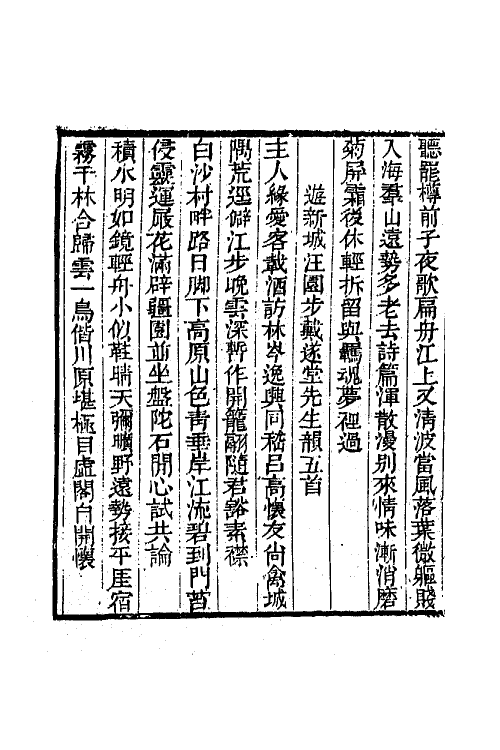 聽罷樽前子夜歌扁舟江上又清波當風落葉微軀賤
入海羣山遠勢多老去詩篇渾散漫別來情味漸消磨
菊屏霜後休輕拆留與羈魂夢裡過
遊新城汪園步戴遂堂先生韻五首
主人緣愛客載酒訪林岑逸興同嵇呂高懷友尙禽城
隅荒逕僻江步晚雲深暫作開籠翮隨君豁素襟
白沙村畔路日脚下高原山色靑垂岸江流碧到門苔
侵靈運屐花滿辟疆園並坐盤陀石開心試共論
積水明如鏡輕舟小似鞋晴天彌曠野遠勢接平厓宿
霧千林合歸雲一鳥偕川原堪極目虛閣自開懷